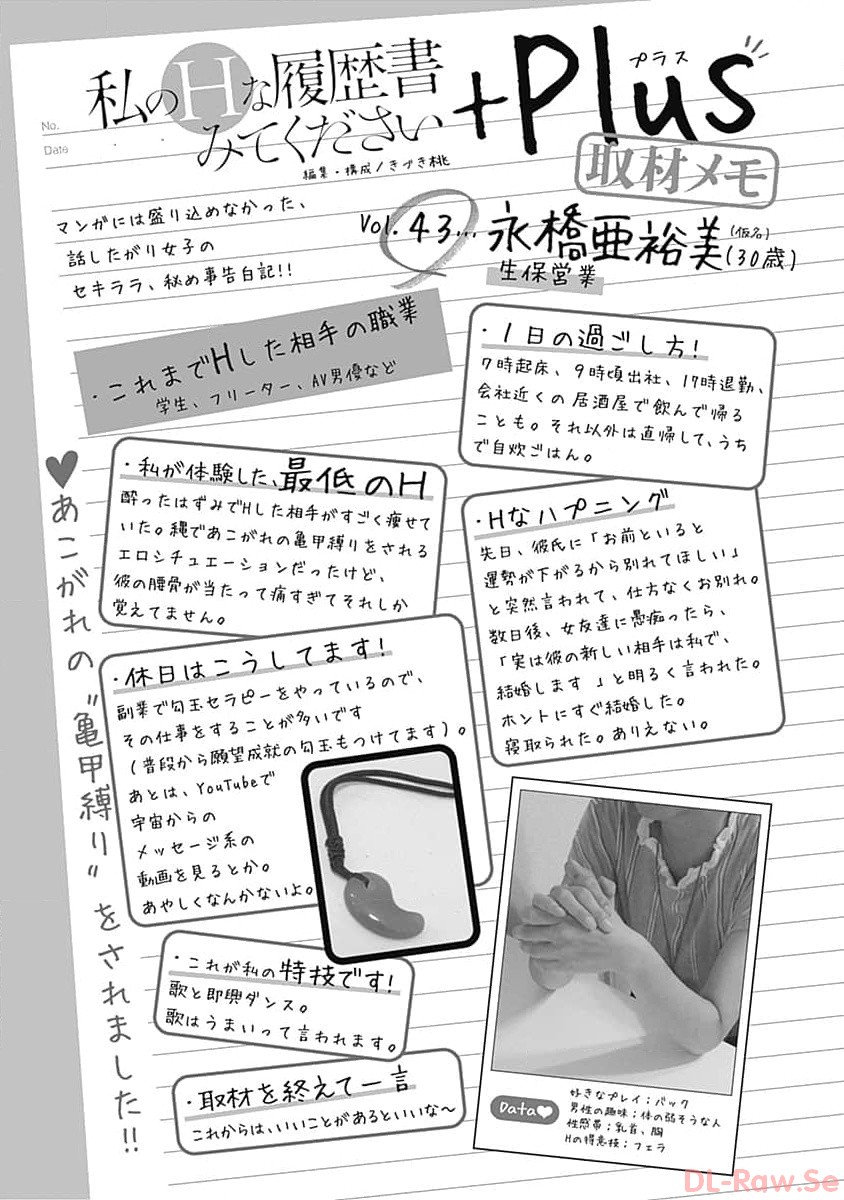 私のHな履歴書
みてください
+Plus
プラス
編集・構成/きづき桃
取材メモ
No.
Date
マンガには盛り込めなかった、
話したがり女子の
セキララ、秘め事告白記!!
Vol.43… 永橋亜裕美(仮名)(30歳)
生保営業
・これまでHした相手の職業
学生、フリーター、AV男優など
・1日の過ごし方!
7時起床、9時頃出社、17時退勤、
会社近くの居酒屋で飲んで帰る
ことも。それ以外は直帰して、うち
で自炊ごはん。
・私が体験した、最低のH
酔ったはずみでHした相手がすごく痩せて
いた。縄であこがれの亀甲縛りをされる
エロシチュエーションだったけど、
彼の腰骨が当たって痛すぎてそれしか
覚えてません。
・Hなハプニング
先日、彼氏に「お前といると
運勢が下がるから別れてほしい」
と突然言われて、仕方なくお別れ。
数日後、女友達に愚痴ったら、
「実は彼の新しい相手は私で、
結婚します」と明るく言われた。
ホントにすぐ結婚した。
寝取られた。ありえない。
♥あこがれの〝亀甲縛り〟をされました!!
・休日はこうしてます!
副業で勾玉セラピーをやっているので、
その仕事をすることが多いです
(普段から願望成就の勾玉もつけてます)。
あとは、YouTubeで
宇宙からの
メッセージ系の
動画を見るとか。
あやしくなんかないよ。
・これが私の特技です!
歌と即興ダンス。
歌はうまいって言われます。
・取材を終えて一言
これからは、いいことがあるといいな〜
Data♥
好きなプレイ;バック
男性の趣味;体の弱そうな人
性感帯;乳首、胸
Hの得意技;フェラ
DL-Raw.Se